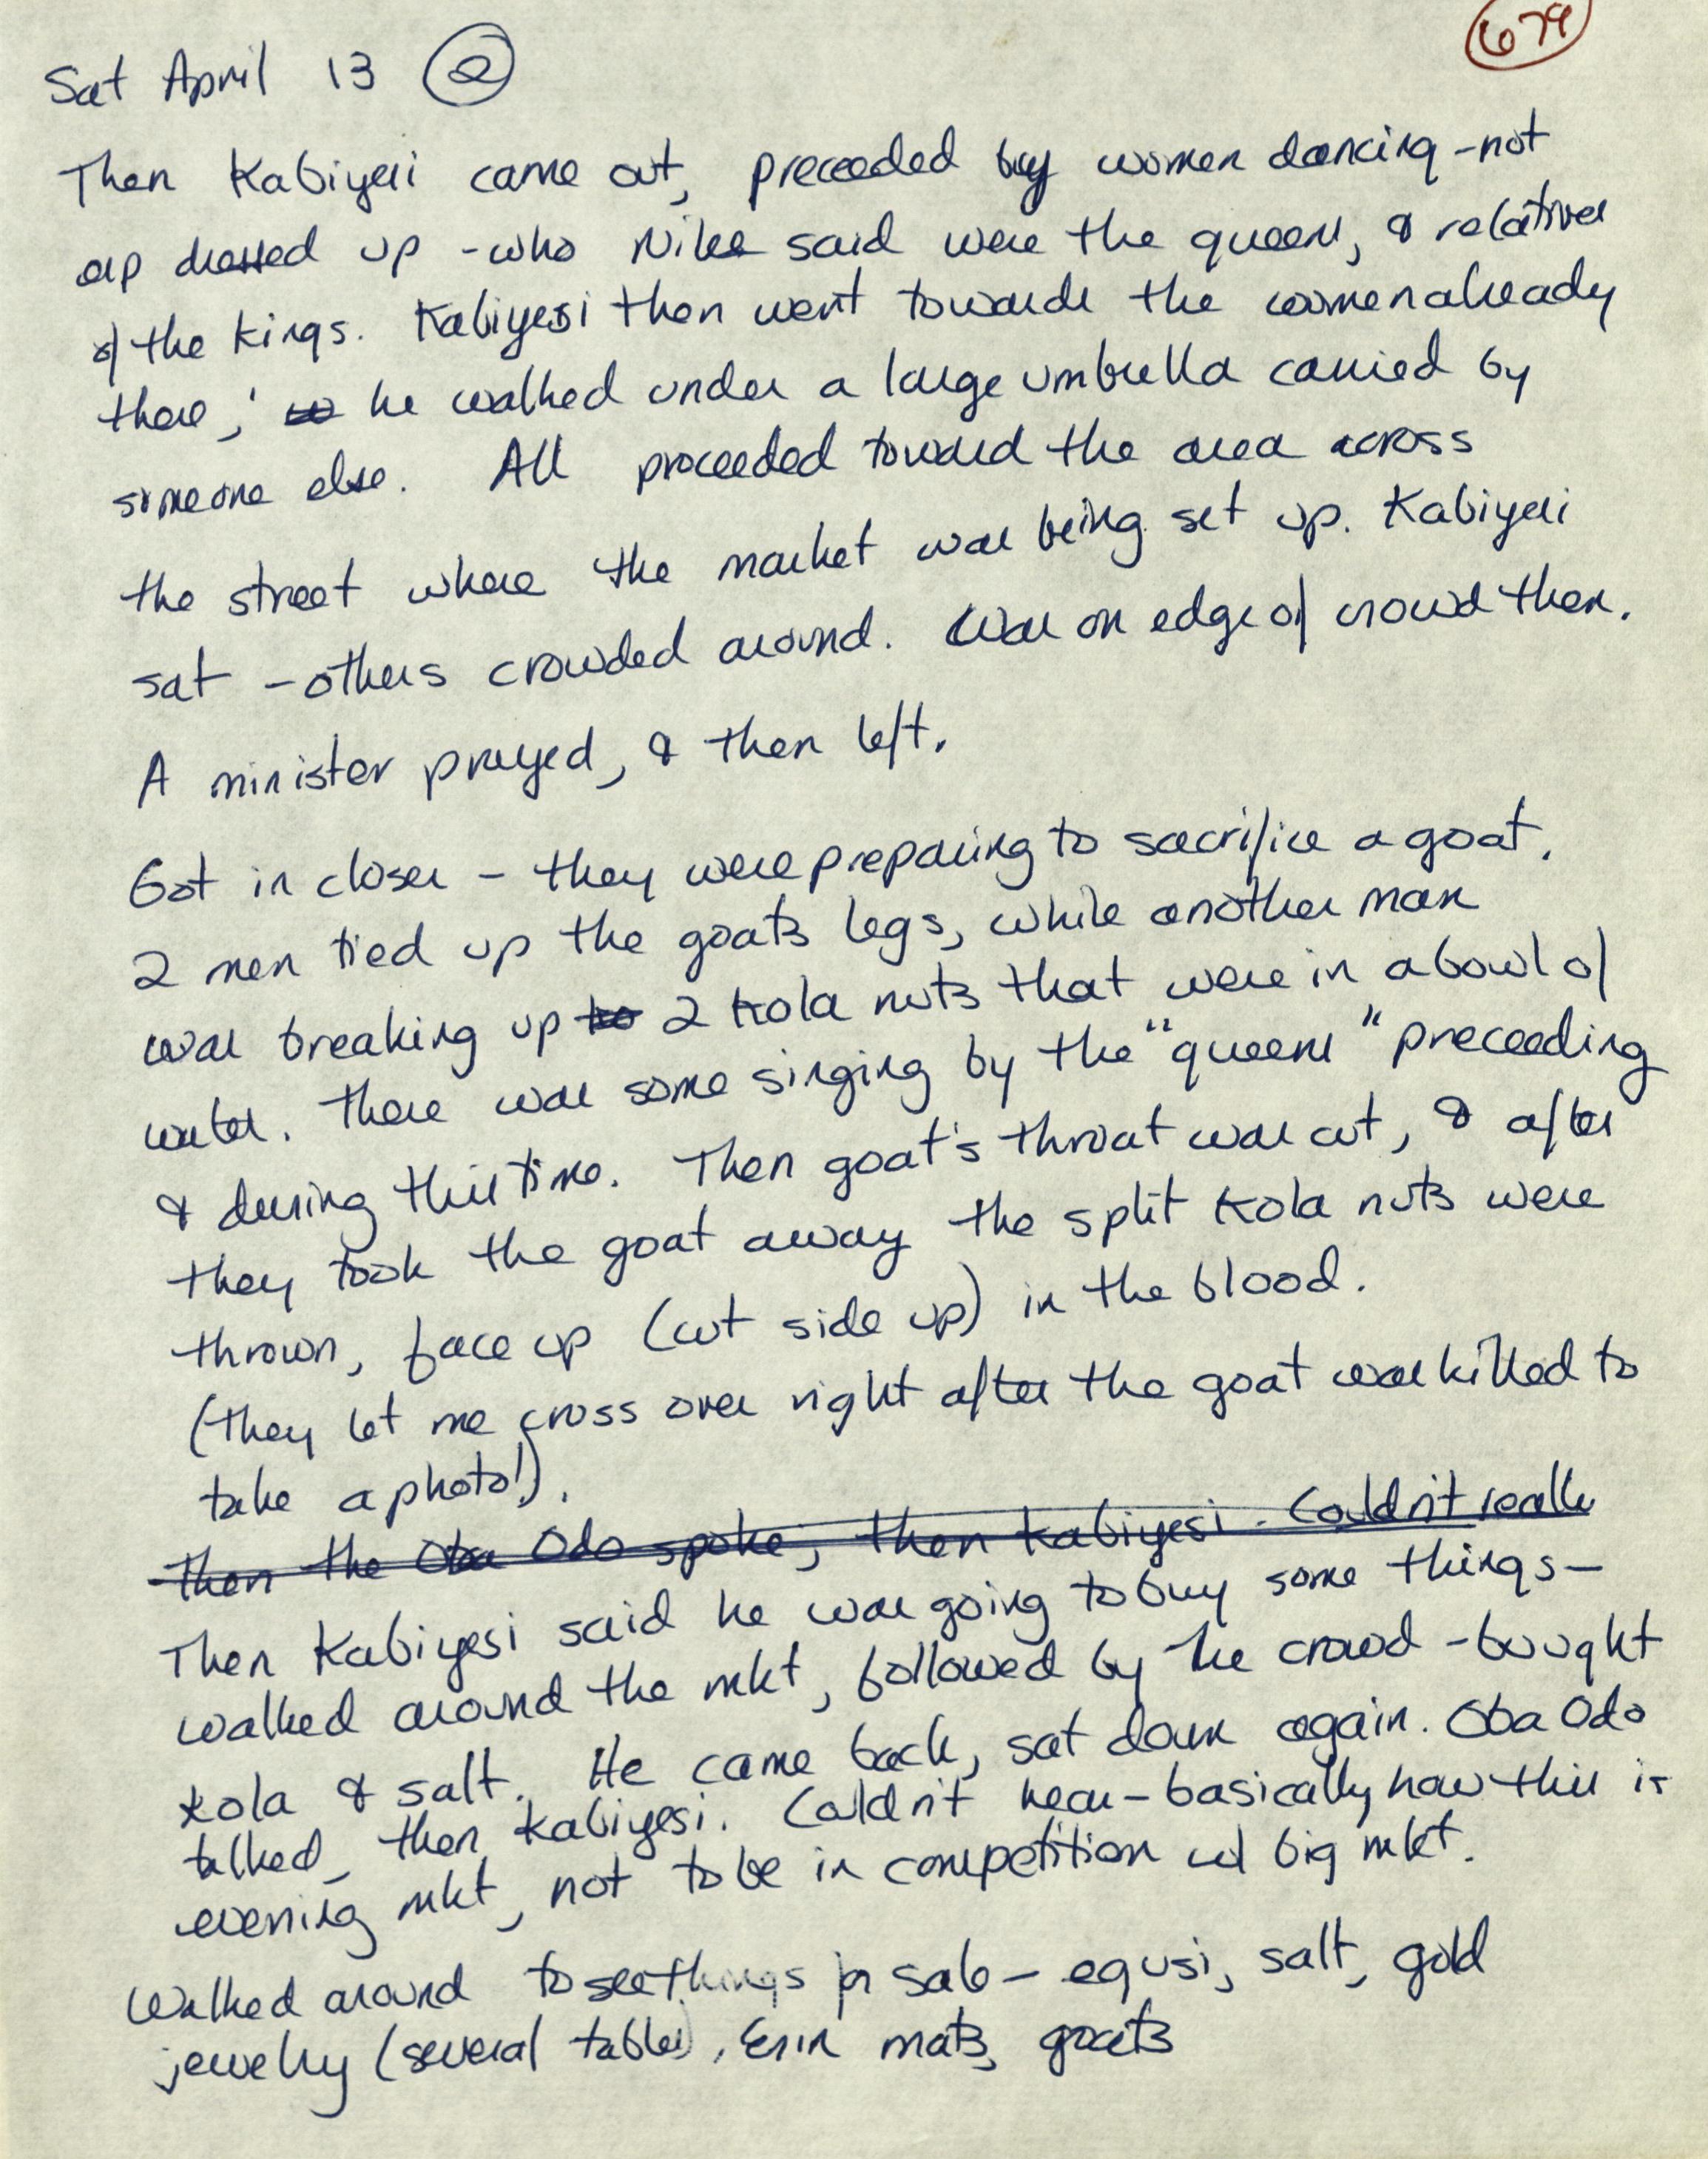 679
Sat April 13 2
Then Kabiyesi came out, preceeded by women dancing - not
esp dressed up - who Nike said were the queens, & relatives
of the kings. Kabiyesi then went towards the women already
there; he walked under a large umbrella carried by
someone else. All proceeded toward the area across
the street where the market was being set up. Kabiyesi
sat - others crowded around. Was on edge of crowd then.
A minister prayed, & then left.
Got in closer - they were preparing to sacrifice a goat.
2 men tied up the goats legs, while another man
was breaking up to 2 kola nuts that were in a bowl of
water. There was some singing by the "queens" preceeding
& during this time. Then goat's throat was cut, & after
they took the goat away the split kola nuts were
thrown, face up (cut side up) in the blood.
(they let me cross over right after the goat was killed to
take a photo!).
Then the Oba Odo spoke, then Kabiyesi. Couldn't really
Then Kabiyesi said he was going to buy some things -
walked around the mkt, followed by the crowd - bought
kola & salt. He came back, sat down again. Oba Odo
talked, then Kabiyesi. Couldn't hear - basically how this is
evening mkt, not to be in competition w/ big mkt.
Walked around to see things for sale - egusi, salt, gold
jewelry (several tables), Erin mats, goats